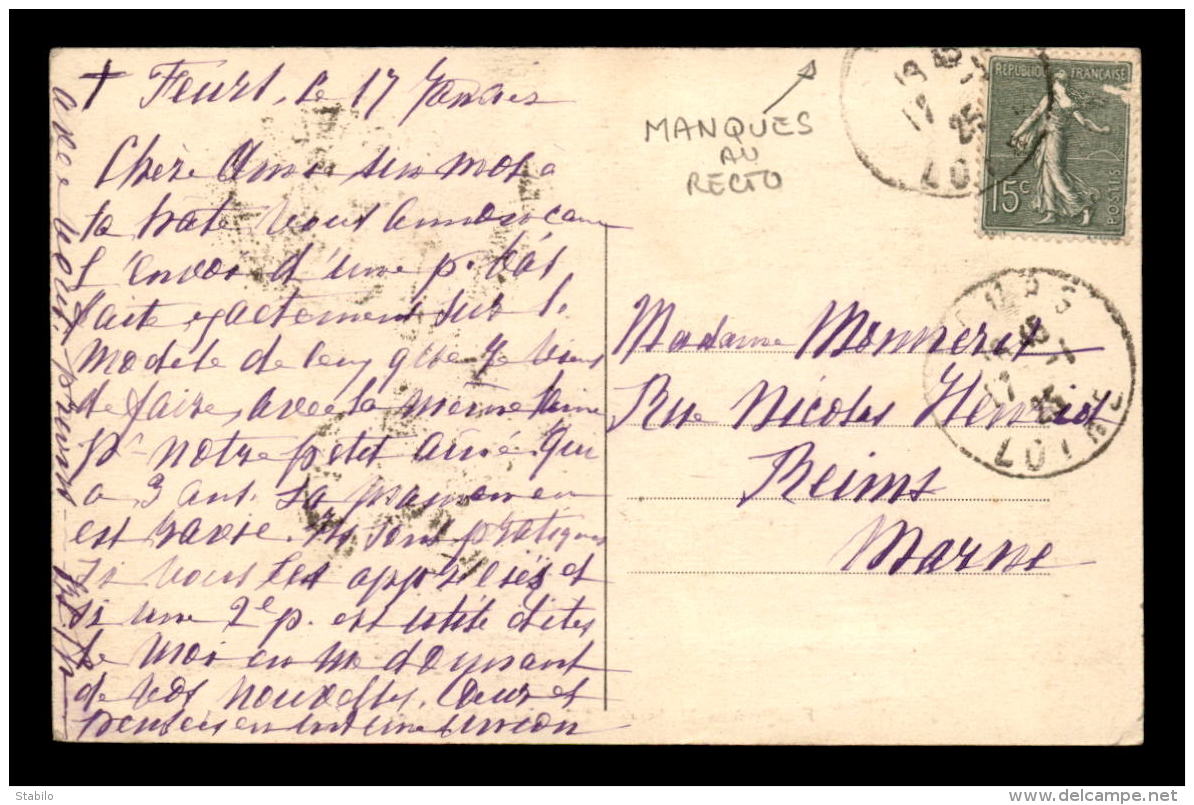 + Feurs, le 17 Janvier
Chère Amie un mot à
la hâte vous annonçant
l'envoi d'une p.
faite exactement sur le
modèle de que je viens
de faire, avec la même laine
pr notre petit aimé qui
a 3 ans. Sa maman en
est ravie. Ils sont pratiques
si vous les et
si une 2e p. est utile dites
le moi en me donnant
de vos nouvelles. Cœur et
pensées en union
avec vous.
MANQUES
AU
RECTO
18 45
17
25
LOI
REPUBLIQUE FRANÇAISE
15c
POSTES
FEURS
18 45
17 -1
25
LOIRE
Madame Monneret
Rue Nicolas Henriot
Reims
Marne
Stabilo
www.delcampe.net